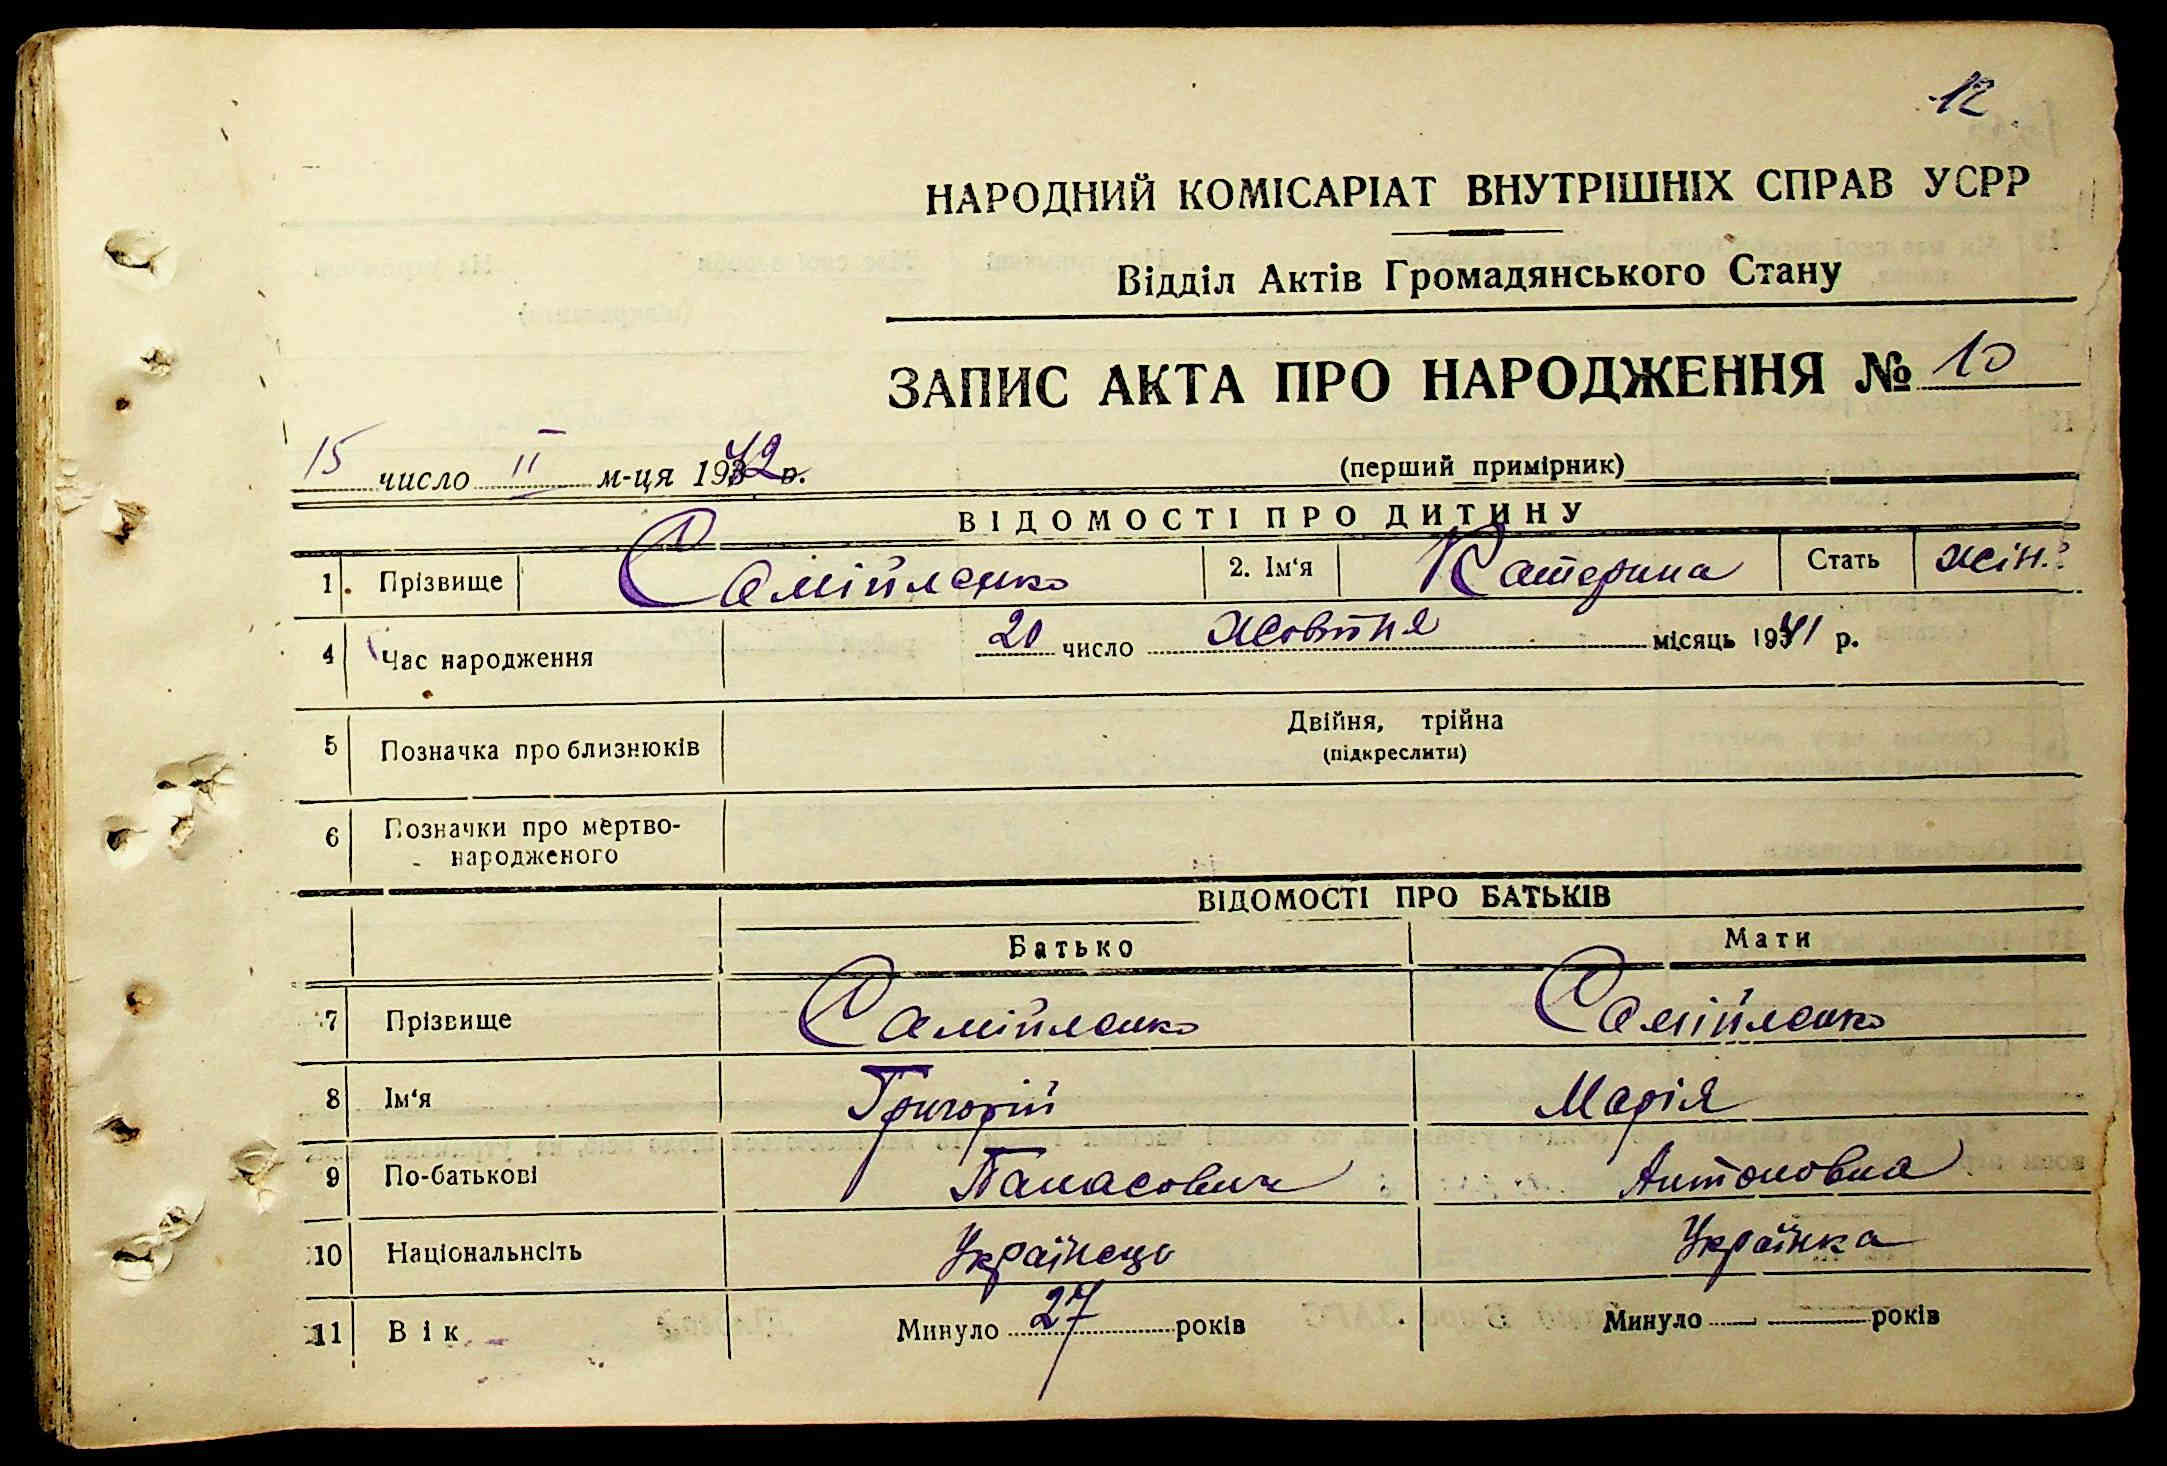 12
НАРОДНИЙ КОМІСАРІАТ ВНУТРІШНІХ СПРАВ УСРР
Відділ Актів Громадянського Стану
ЗАПИС АКТА ПРО НАРОДЖЕННЯ № 10
15 число II м-ця 1942 р.
(перший примірник)
ВІДОМОСТІ ПРО ДИТИНУ
1. Прізвище Самійленко 2. Ім'я Катерина Стать жін.
4 Час народження 20 число жовтня місяць 1941 р.
5 Позначка про близнюків Двійня, трійна
(підкреслити)
6 Позначки про мертво-
народженого
ВІДОМОСТІ ПРО БАТЬКІВ
Батько Мати
7 Прізвище Самійленко Самійленко
8 Ім'я Григорій Марія
9 По-батькові Панасович Антоновна
10 Національнсіть Українець Українка
11 Вік Минуло 27 років Минуло — років